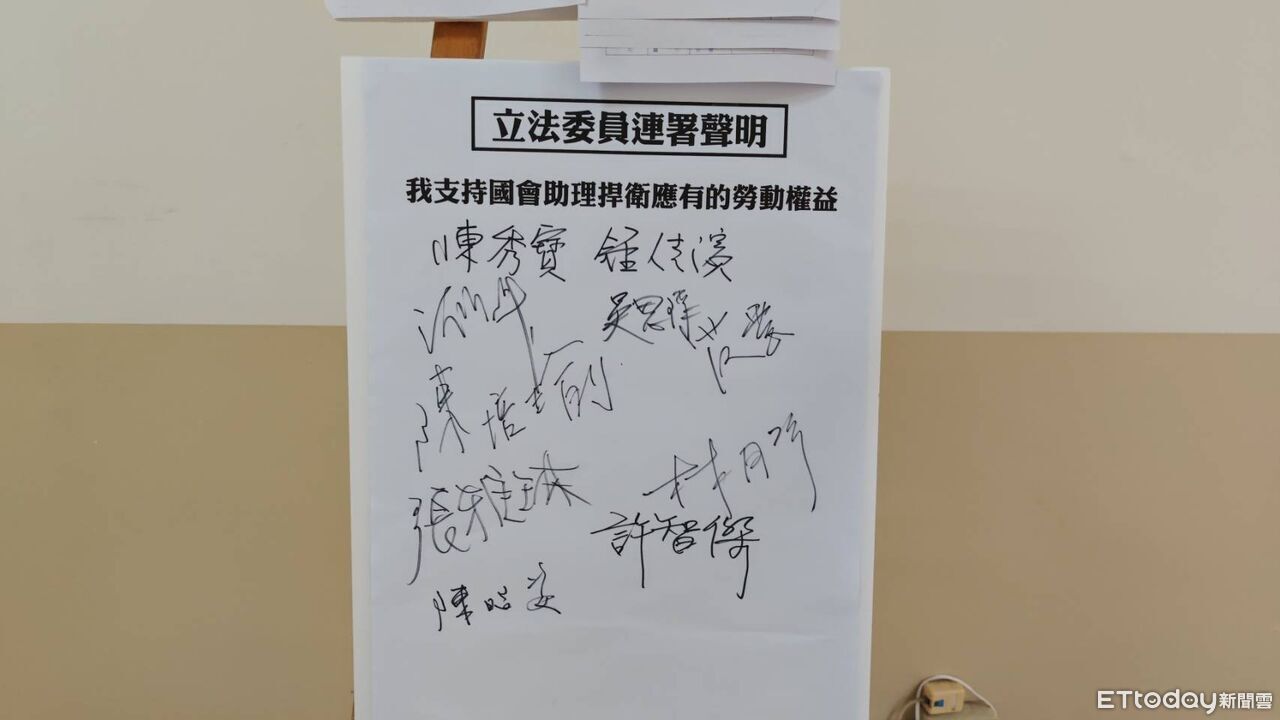 立法委員連署聲明
我支持國會助理捍衛應有的勞動權益
陳秀寶 鍾佳濱
吳思瑤
陳培瑜
張雅琳 林月琴
許智傑
ETtoday新聞雲